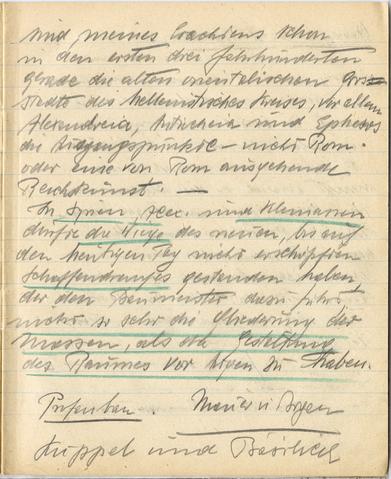 sind meines Erachtens schon
in den ersten drei Jahrhunderten
gerade die alten orientalischen Gross=
städte des hellenistischen Kreises, vor allem
Alexandreia, Antiocheia und Ephesos
die Ausgangspunkte – nicht Rom
oder eine von Rom ausgehende
Reichskunst. —
In Syrien, und Kleinasien
dürfte die Wiege des neuen, bis auf
den heutigen Tag nicht erschöpften
Schaffensdranges gestanden haben,
der den Baumeister dazu führt
nicht so sehr die Gliederung der
Massen, als die Gestaltung
des Raumes vor Augen zu haben.
Mauer u
Kuppel und Basilica